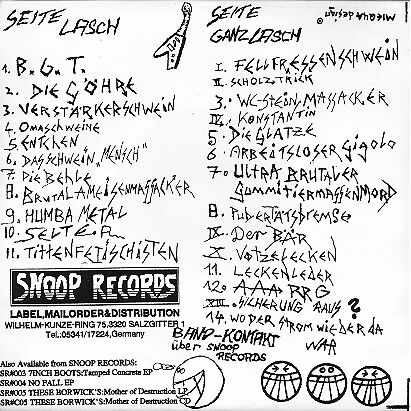 SEITE
LASCH
1. B.G.T.
2. DIE GÖHRE
3. VERSTÄRKERSCHWEIN
4. OMASCHWEINE
5. ENTCHEN
6. DAS SCHWEIN „MENSCH"
7. DIE BEHLE
8. BRUTALAMEISENMASSACKER
9. HUMBA METAL
10. SELTER
11. TITTENFETISCHISTEN
SNOOP RECORDS
LABEL,MAILORDER&DISTRIBUTION
WILHELM-KUNZE-RING 75,3320 SALZGITTER 1
Tel.:05341/17224,Germany
Also Available from SNOOP RECORDS:
SR#003 7INCH BOOTS:Tamped Concrete EP
SR#004 NO FALL EP
SR#005 THESE BORWICK'S:Mother of Destruction LP
SR#C05 THESE BORWICK'S:Mother of Destruction CD
SEITE
GANZ LASCH
design
I. FELLFRESSENSCHWEIN
II. SCHOLZ-TRICK
3. WC-STEIN MASSACKER
IV. KONSTANTIN
5. DIE GLATZE
6. ARBEITSLOSER GIGOLO
7. ULTRA BRUTALER
GUMMITIERMASSENMORD
8. PUBERTÄTSBREMSE
IX. DER BÄR
X. VOTZELECKEN
11. LECKENLEDER
12. AAARRG
XIII. SICHERUNG RAUS?
14. WO DER STROM WIEDER DA
WAR
BAND-KONTAKT
über SNOOP
RECORDS